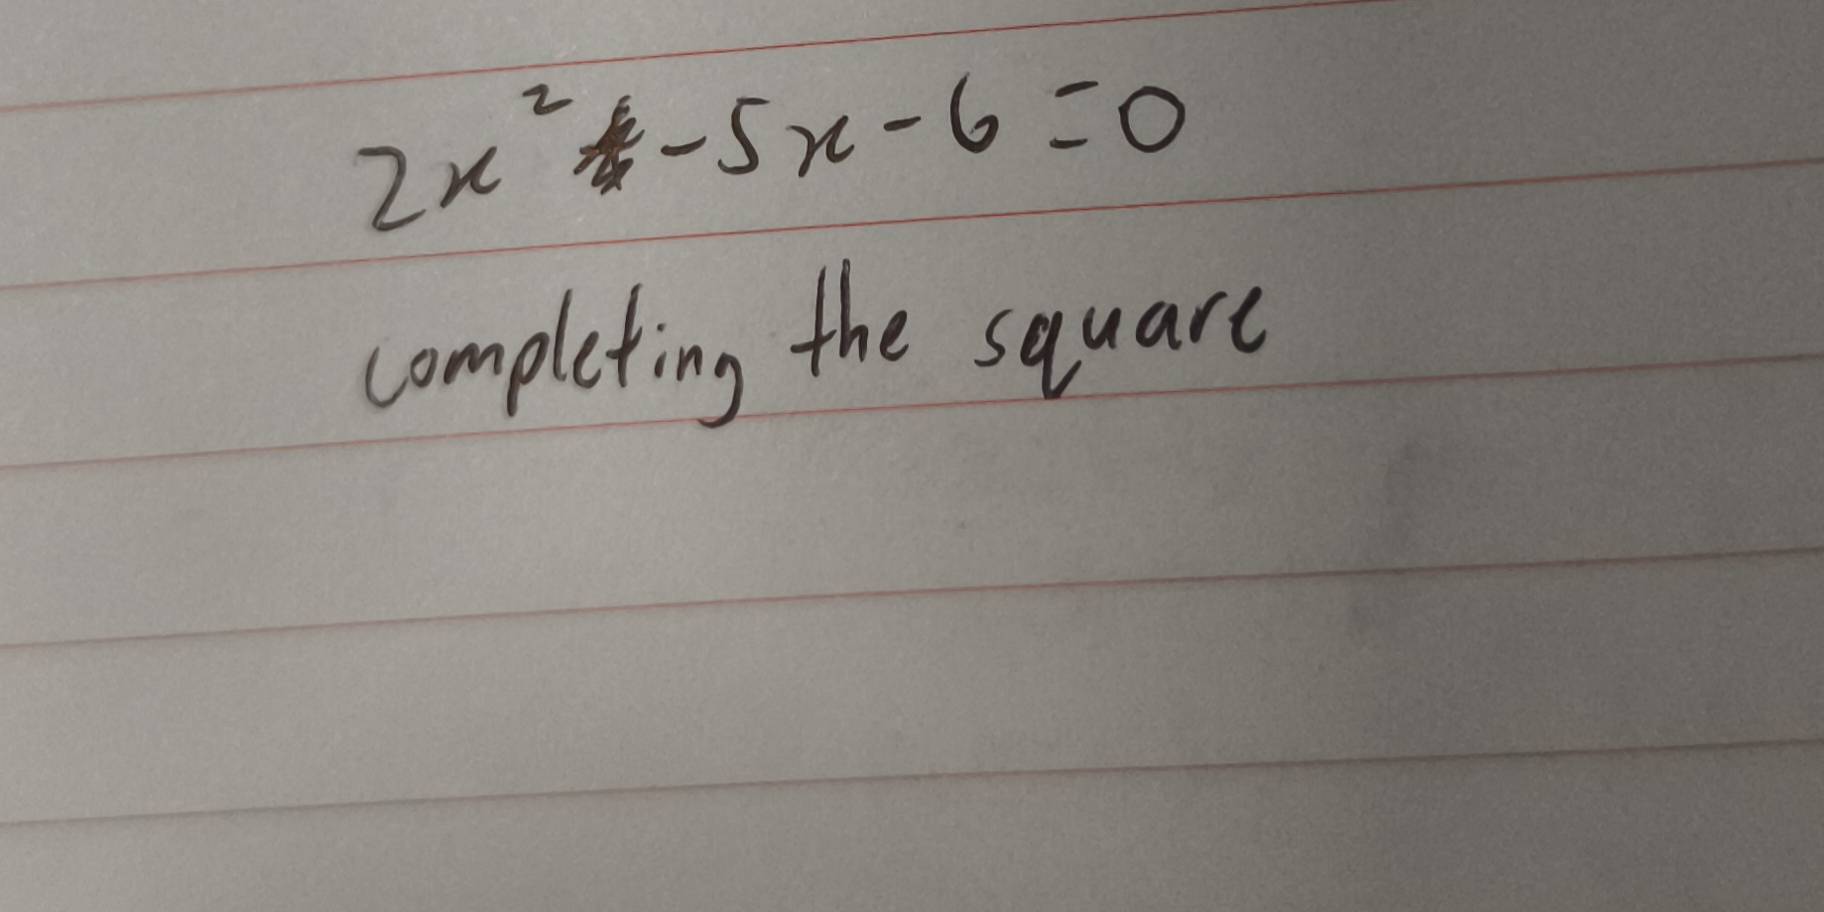 2x² -5x-6=0
completing the square